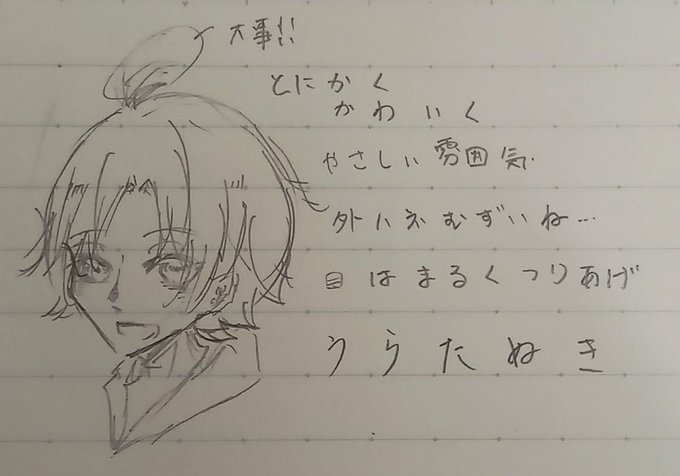 大事!!
とにかく
かわいく
やさしい雰囲気
外ハネむずいね…
目はまるくつりあげ
うらたぬき